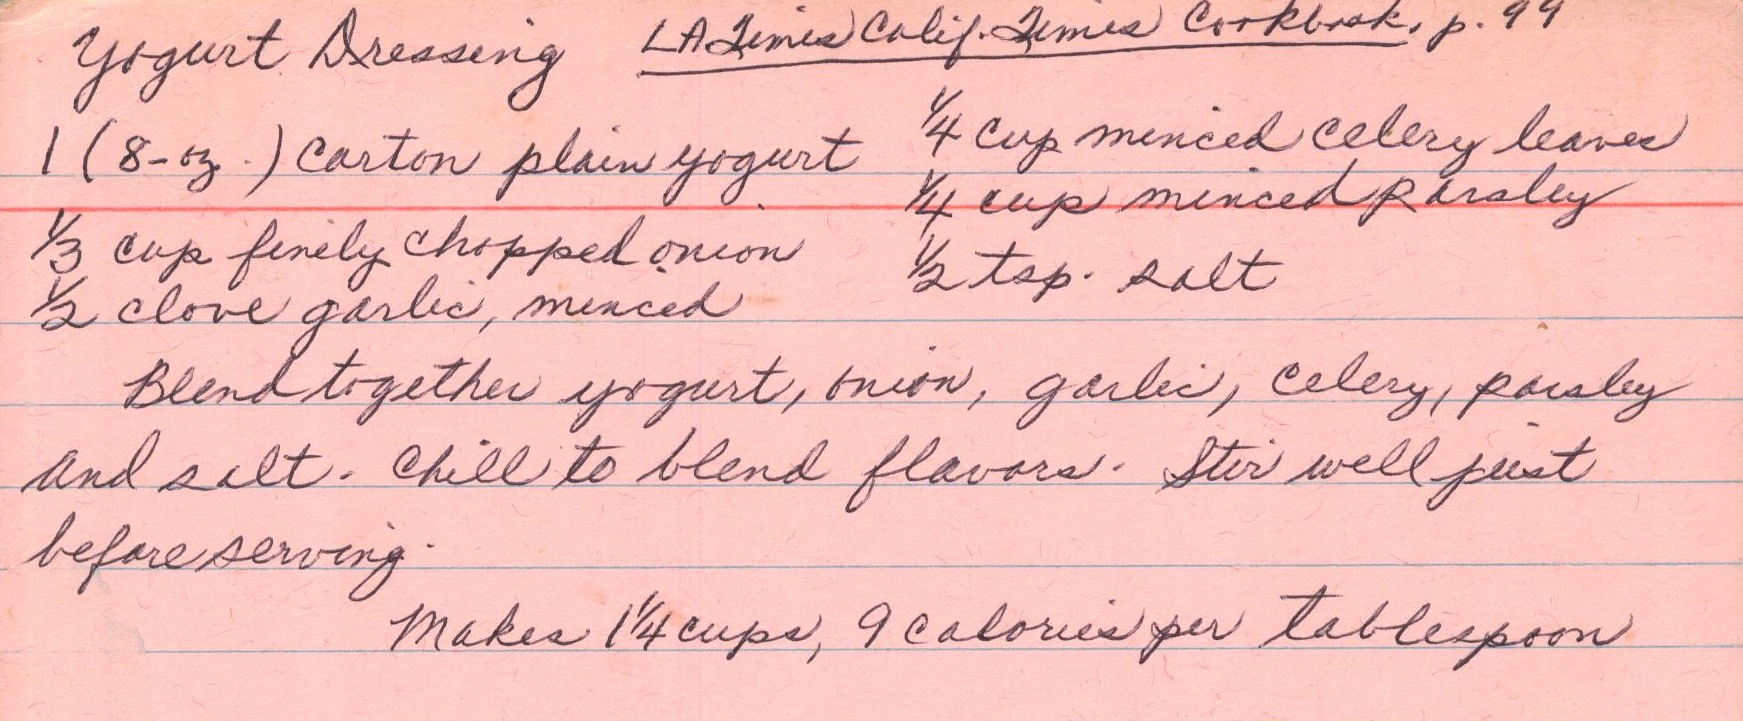 Yogurt Dressing LA Times Calif. Times Cookbook, p. 99
1 (8-oz.) carton plain yogurt
1/3 cup finely chopped onion
1/2 clove garlic, minced
1/4 cup minced celery leaves
1/4 cup minced parsley
1/2 tsp. salt
Blend together yogurt, onion, garlic, celery, parsley
and salt. Chill to blend flavors. Stir well just
before serving.
Makes 1 1/4 cups, 9 calories per tablespoon